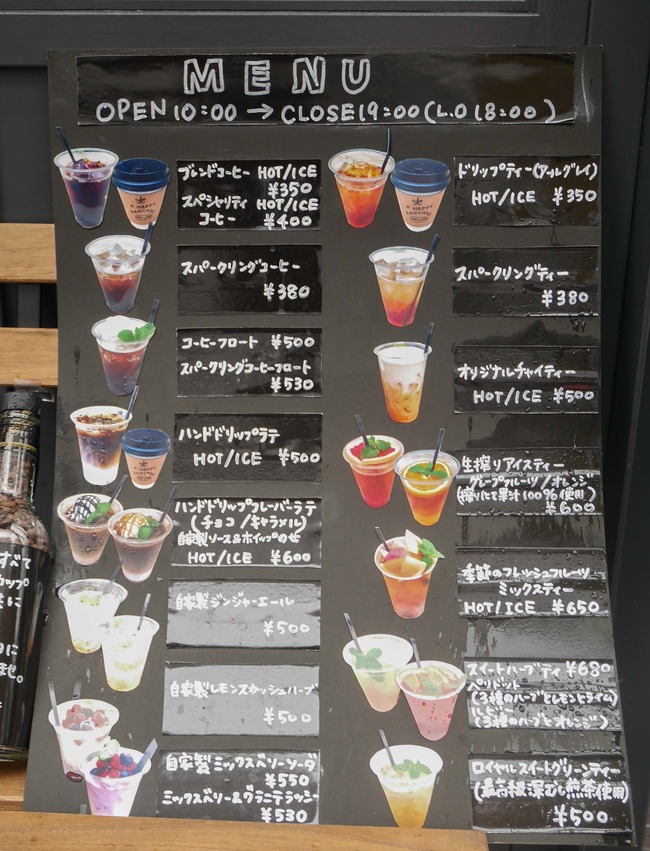 MENU
OPEN 10:00 → CLOSE 19:00 (L.O 18:00)
ブレンドコーヒー HOT/ICE
¥350
スペシャリティ HOT/ICE
コーヒー ¥400
スパークリングコーヒー
¥380
コーヒーフロート ¥500
スパークリングコーヒーフロート
¥530
ハンドドリップラテ
HOT/ICE ¥500
ハンドドリップフレーバーラテ
(チョコ/キャラメル)
自家製ソース&ホイップのせ
HOT/ICE ¥600
自家製ジンジャーエール
¥500
自家製レモンスカッシュハーブ
¥500
自家製ミックスベリーソーダ
¥550
ミックスベリー&グラニテラッシー
¥530
ドリップティー(アールグレイ)
HOT/ICE ¥350
スパークリングティー
¥380
オリジナルチャイティー
HOT/ICE ¥500
生搾りアイスティー
グレープフルーツ/オレンジ
(搾りたて果汁100%使用)
¥600
季節のフレッシュフルーツ
ミックスティー
HOT/ICE ¥650
スイートハーブティ ¥680
ペリドット
(3種のハーブとレモンとライム)
(3種のハーブとオレンジ)
ロイヤルスイートグリーンティー
(最高級深むし煎茶使用)
¥500
すべて
カップ